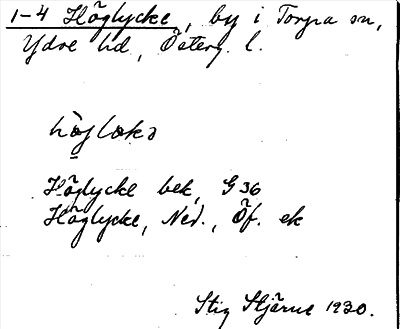 1-4 Höglycke, by i Torpa sn,
Ydre hd, Österg. l.
Höglycke bek, G 36
Höglycke, Ned., Öf. ek
Stig Stjärne 1930.